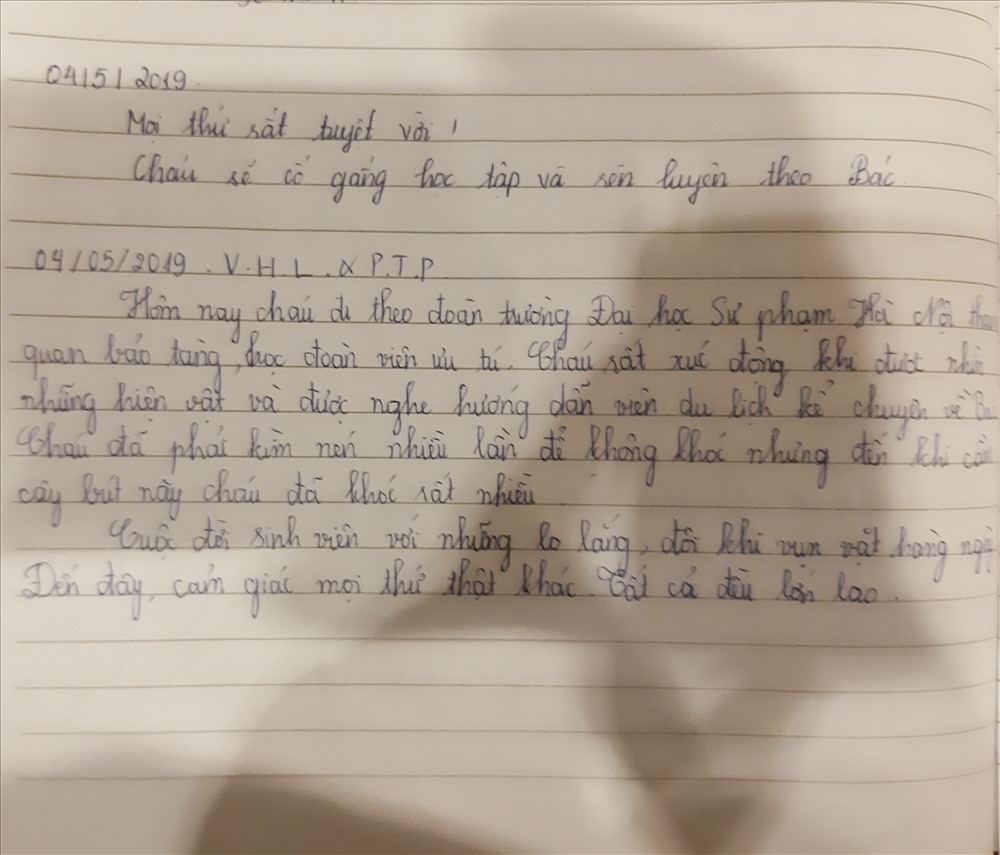 04/5/2019.
Mọi thứ rất tuyệt vời!
Cháu sẽ cố gắng học tập và rèn luyện theo Bác.
04/05/2019. V.H.L. & P.T.P
Hôm nay cháu đi theo đoàn trường Đại học Sư phạm Hà Nội
quan bảo tàng, học đoàn viên ưu tú. Cháu rất xúc động khi được nhìn
những hiện vật và được nghe hướng dẫn viên du lịch kể chuyện về
Cháu đã phải kìm nén nhiều lần để không khóc nhưng đến khi
cây bút này cháu đã khóc rất nhiều
Cuộc đời sinh viên với những lo lắng, đôi khi vụn vặt hàng
Đến đây, cảm giác mọi thứ thật khác. Tất cả đều lớn lao.